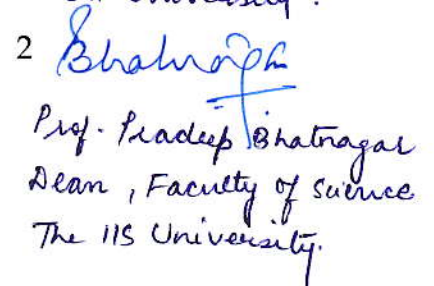 University.
2 Bhatnagar
Prof. Pradeep Bhatnagar
Dean, Faculty of Science
The IIS University.